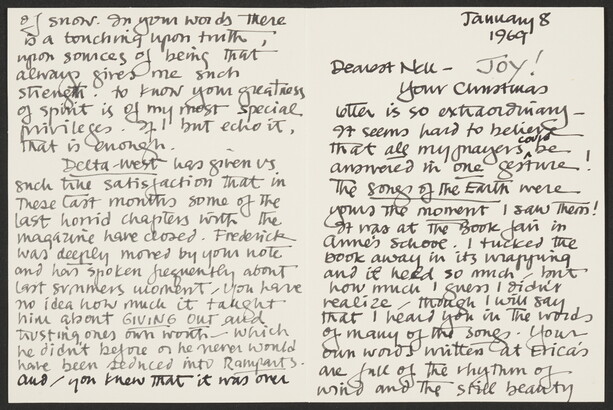 January 8
1969
Dearest Nell — JOY!
Your Christmas
letter is so extraordinary —
It seems hard to believe
that all my prayers could be
answered in one gesture!
The Songs of the Earth were
yours the moment I saw them!
It was at the Book Fair in
Anne's school. I tucked the
book away in its wrapping
and it held so much, but
how much I guess I didn't
realize, though I will say
that I heard you in the words
of many of the songs. Your
own words written at Erica's
are full of the rhythm of
wind and the still beauty
of snow. In your words there
is a touching upon truth,
upon sources of being that
always gives me such
strength. to know your greatness
of spirit is of my most special
privileges. If I but echo it,
that is enough.
Delta-West has given us
such fine satisfaction that in
these last months some of the
last horrid chapters with the
magazine have closed. Frederick
was deeply moved by your note
and has spoken frequently about
last summers moment, you have
no idea how much it taught
him about GIVING OUT and
trusting ones own worth — which
he didn't before or he never would
have been seduced into Ramparts.
And, you knew that it was over